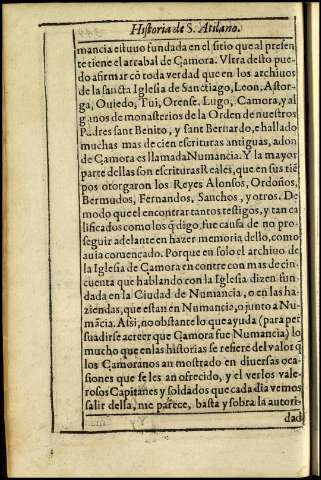 Historia de S. Atilano.
mancia estuuo fundada en el sitio que al presen
te tiene el arrabal de Çamora. Vltra desto pue-
do afirmar cõ toda verdad que en los archiuos
de la sancta Iglesia de Sanctiago, Leon, Astor-
ga, Ouiedo, Tui, Orense, Lugo, Çamora, y al
gunos de monasterios de la Orden de nuestros
Padres sant Benito, y sant Bernardo, e hallado
muchas mas de cien escrituras antiguas, adon
de Çamora es llamada Numancia. Y la mayor
parte dellas son escrituras Reales, que en sus tiẽ
pos otorgaron los Reyes Alonsos, Ordoños,
Bermudos, Fernandos, Sanchos, y otros. De
modo que el encontrar tantos testigos, y tan ca
lificados como los q̃ digo, fue causa de no pro-
seguir adelante en hazer memoria dello, como
auia començado. Porque en solo el archiuo de
la Iglesia de Çamora encontre con mas de cin-
cuenta que hablando con la Iglesia dizen fun-
dada en la Ciudad de Numancia, o en las ha-
ziendas, que estan en Numancia, o junto a Nu-
mãcia. Assi, no obstante lo que ayuda (para per
suadirse a creer que Çamora fue Numancia) lo
mucho que en las historias se refiere del valor q̃
los Çamoranos an mostrado en diuersas oca-
siones que se les an ofrecido, y el verlos vale-
rosos Capitanes y soldados que cada dia vemos
salir della, me parece, basta y sobra la autori-
dad